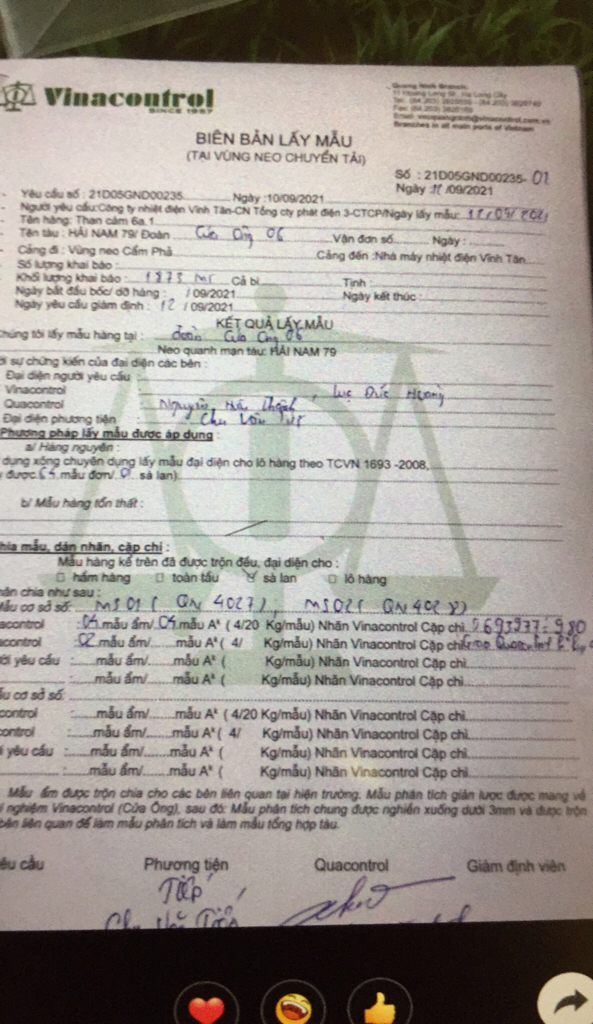 Vinacontrol
SINCE 1957
Quang Ninh Branch:
Branches in all main ports of Vietnam
BIÊN BẢN LẤY MẪU
(TẠI VÙNG NEO CHUYỂN TẢI)
Số : 21D05GND00235-01
Ngày : /09/2021
Yêu cầu số : 21D05GND00235 Ngày :10/09/2021
Người yêu cầu:Công ty nhiệt điện Vĩnh Tân-CN Tổng cty phát điện 3-CTCP/Ngày lấy mẫu:
Tên hàng: Than cám 6a.1
Tên tàu : HẢI NAM 79/ Đoàn Cửa Ông 06 Vận đơn số Ngày :
Cảng đi : Vùng neo Cẩm Phả Cảng đến :Nhà máy nhiệt điện Vĩnh Tân
Số lượng khai báo :
Khối lượng khai báo : 1875 MT Cả bì Tịnh :
Ngày bắt đầu bốc/ dỡ hàng : / 09/2021 Ngày kết thúc :
Ngày yêu cầu giám định : 12 / 09/2021
KẾT QUẢ LẤY MẪU
húng tôi lấy mẫu hàng tại : đoàn Cửa Ông 06
Neo quanh mạn tàu: HẢI NAM 79
ới sự chứng kiến của đại diện các bên :
Đại diện người yêu cầu :
Vinacontrol , Lục Đức Hoàng
Quacontrol Nguyễn
Đại diện phương tiện Chu Văn
Phương pháp lấy mẫu được áp dụng :
a/ Hàng nguyên :
dụng xông chuyên dụng lấy mẫu đại diện cho lô hàng theo TCVN 1693 -2008,
được 64 mẫu đơn/ sà lan)
b/ Mẫu hàng tổn thất :
hia mẫu, dán nhãn, cặp chì :
Mẫu hàng kể trên đã được trộn đều, đại diện cho :
hầm hàng toàn tầu sà lan lô hàng
hân chia như sau :
ẫu cơ sở số: MS01 ( QN 4027); MS02( QN 402
acontrol :04 mẫu ẩm/ 04 mẫu Aᵏ ( 4/20 Kg/mẫu) Nhãn Vinacontrol Cặp chì
acontrol :02 mẫu ẩm/ mẫu Aᵏ ( 4/ Kg/mẫu) Nhãn Vinacontrol Cặp chì
ời yêu cầu : mẫu ẩm/ mẫu Aᵏ ( Kg/mẫu) Nhãn Vinacontrol Cặp chì
mẫu ẩm/ mẫu Aᵏ ( Kg/mẫu) Nhãn Vinacontrol Cặp chì
ẫu cơ sở số:
control : mẫu ẩm/ mẫu Aᵏ ( 4/20 Kg/mẫu) Nhãn Vinacontrol Cặp chì
control : mẫu ẩm/ mẫu Aᵏ ( 4/ Kg/mẫu) Nhãn Vinacontrol Cặp chì
i yêu cầu : mẫu ẩm/ mẫu Aᵏ ( Kg/mẫu) Nhãn Vinacontrol Cặp chì
: mẫu ẩm/ mẫu Aᵏ ( Kg/mẫu) Nhãn Vinacontrol Cặp chì
Mẫu ẩm được trộn chia cho các bên liên quan tại hiện trường. Mẫu phân tích giản lược được mang về
nghiệm Vinacontrol (Cửa Ông), sau đó: Mẫu phân tích chung được nghiền xuống dưới 3mm và được trộn
bên liên quan để làm mẫu phân tích và làm mẫu tổng hợp tàu.
êu cầu Phương tiện Quacontrol Giám định viên
Tiếp